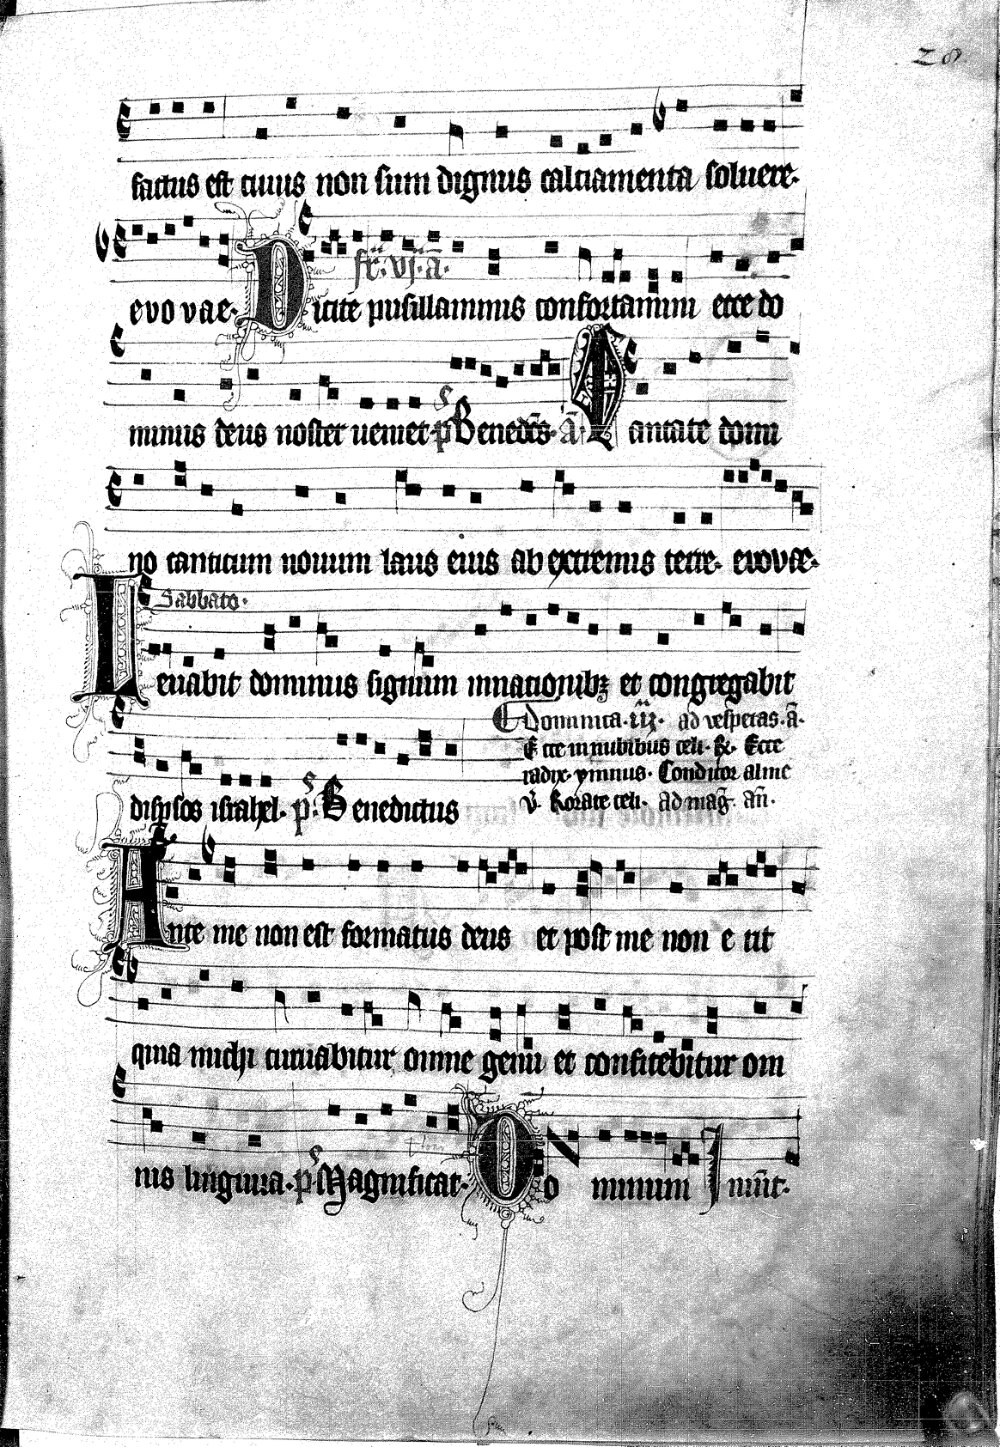 28
factus est cuius non sum dignus calciamenta soluere.
evovae. Dicite pusillanimis confortamini ecce do
fr̄. vj. ā.
minus deus noster ueniet. p̄s Benedc̄s. ā. Cantate domi
no canticum nouum laus eius ab extremis terre. evovae.
Sabbato.
Leuabit dominus signum in nationibꝫ et congregabit
Dominica. iij. ad vesperas. ā.
Ecce in nubibus celi. ℟. Ecce
radix. ymnus. Conditor alme
dispsos israhel. p̄s. Benedictus
v̄. Rorate celi. ad mag̅. an̄.
Ante me non est formatus deus et post me non erit
quia michi curuabitur omne genu et confitebitur om
nis lingua. p̄s Magnificat.
Do minum Inuit.